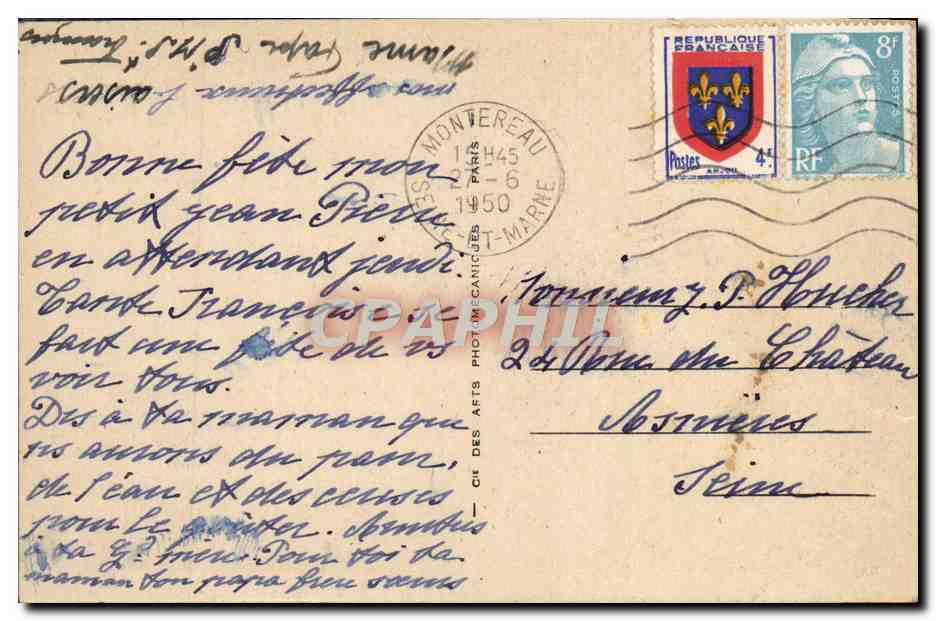 Bonne fête mon
petit jean Pierre
en attendant jeudi.
Tante Françoise se
fait une fête de vs
voir tous.
Dis à ta maman que
ns aurons du pain,
de l'eau et des cerises
pour le goûter. Amitiés
à ta Gd mère. Pour toi ta
maman ton papa frère sœurs
nos affectueux
baisers
REPUBLIQUE
FRANÇAISE
Postes 4F
ANJOU
8F
POSTES
RF
MONTEREAU
1 H45
27-6
1950
SEINE-ET-MARNE
CIE DES ARTS PHOTOMECANIQUES PARIS
CPAPHIL
Monsieur J. P. Hucher
24 du Château
Asnières
Seine